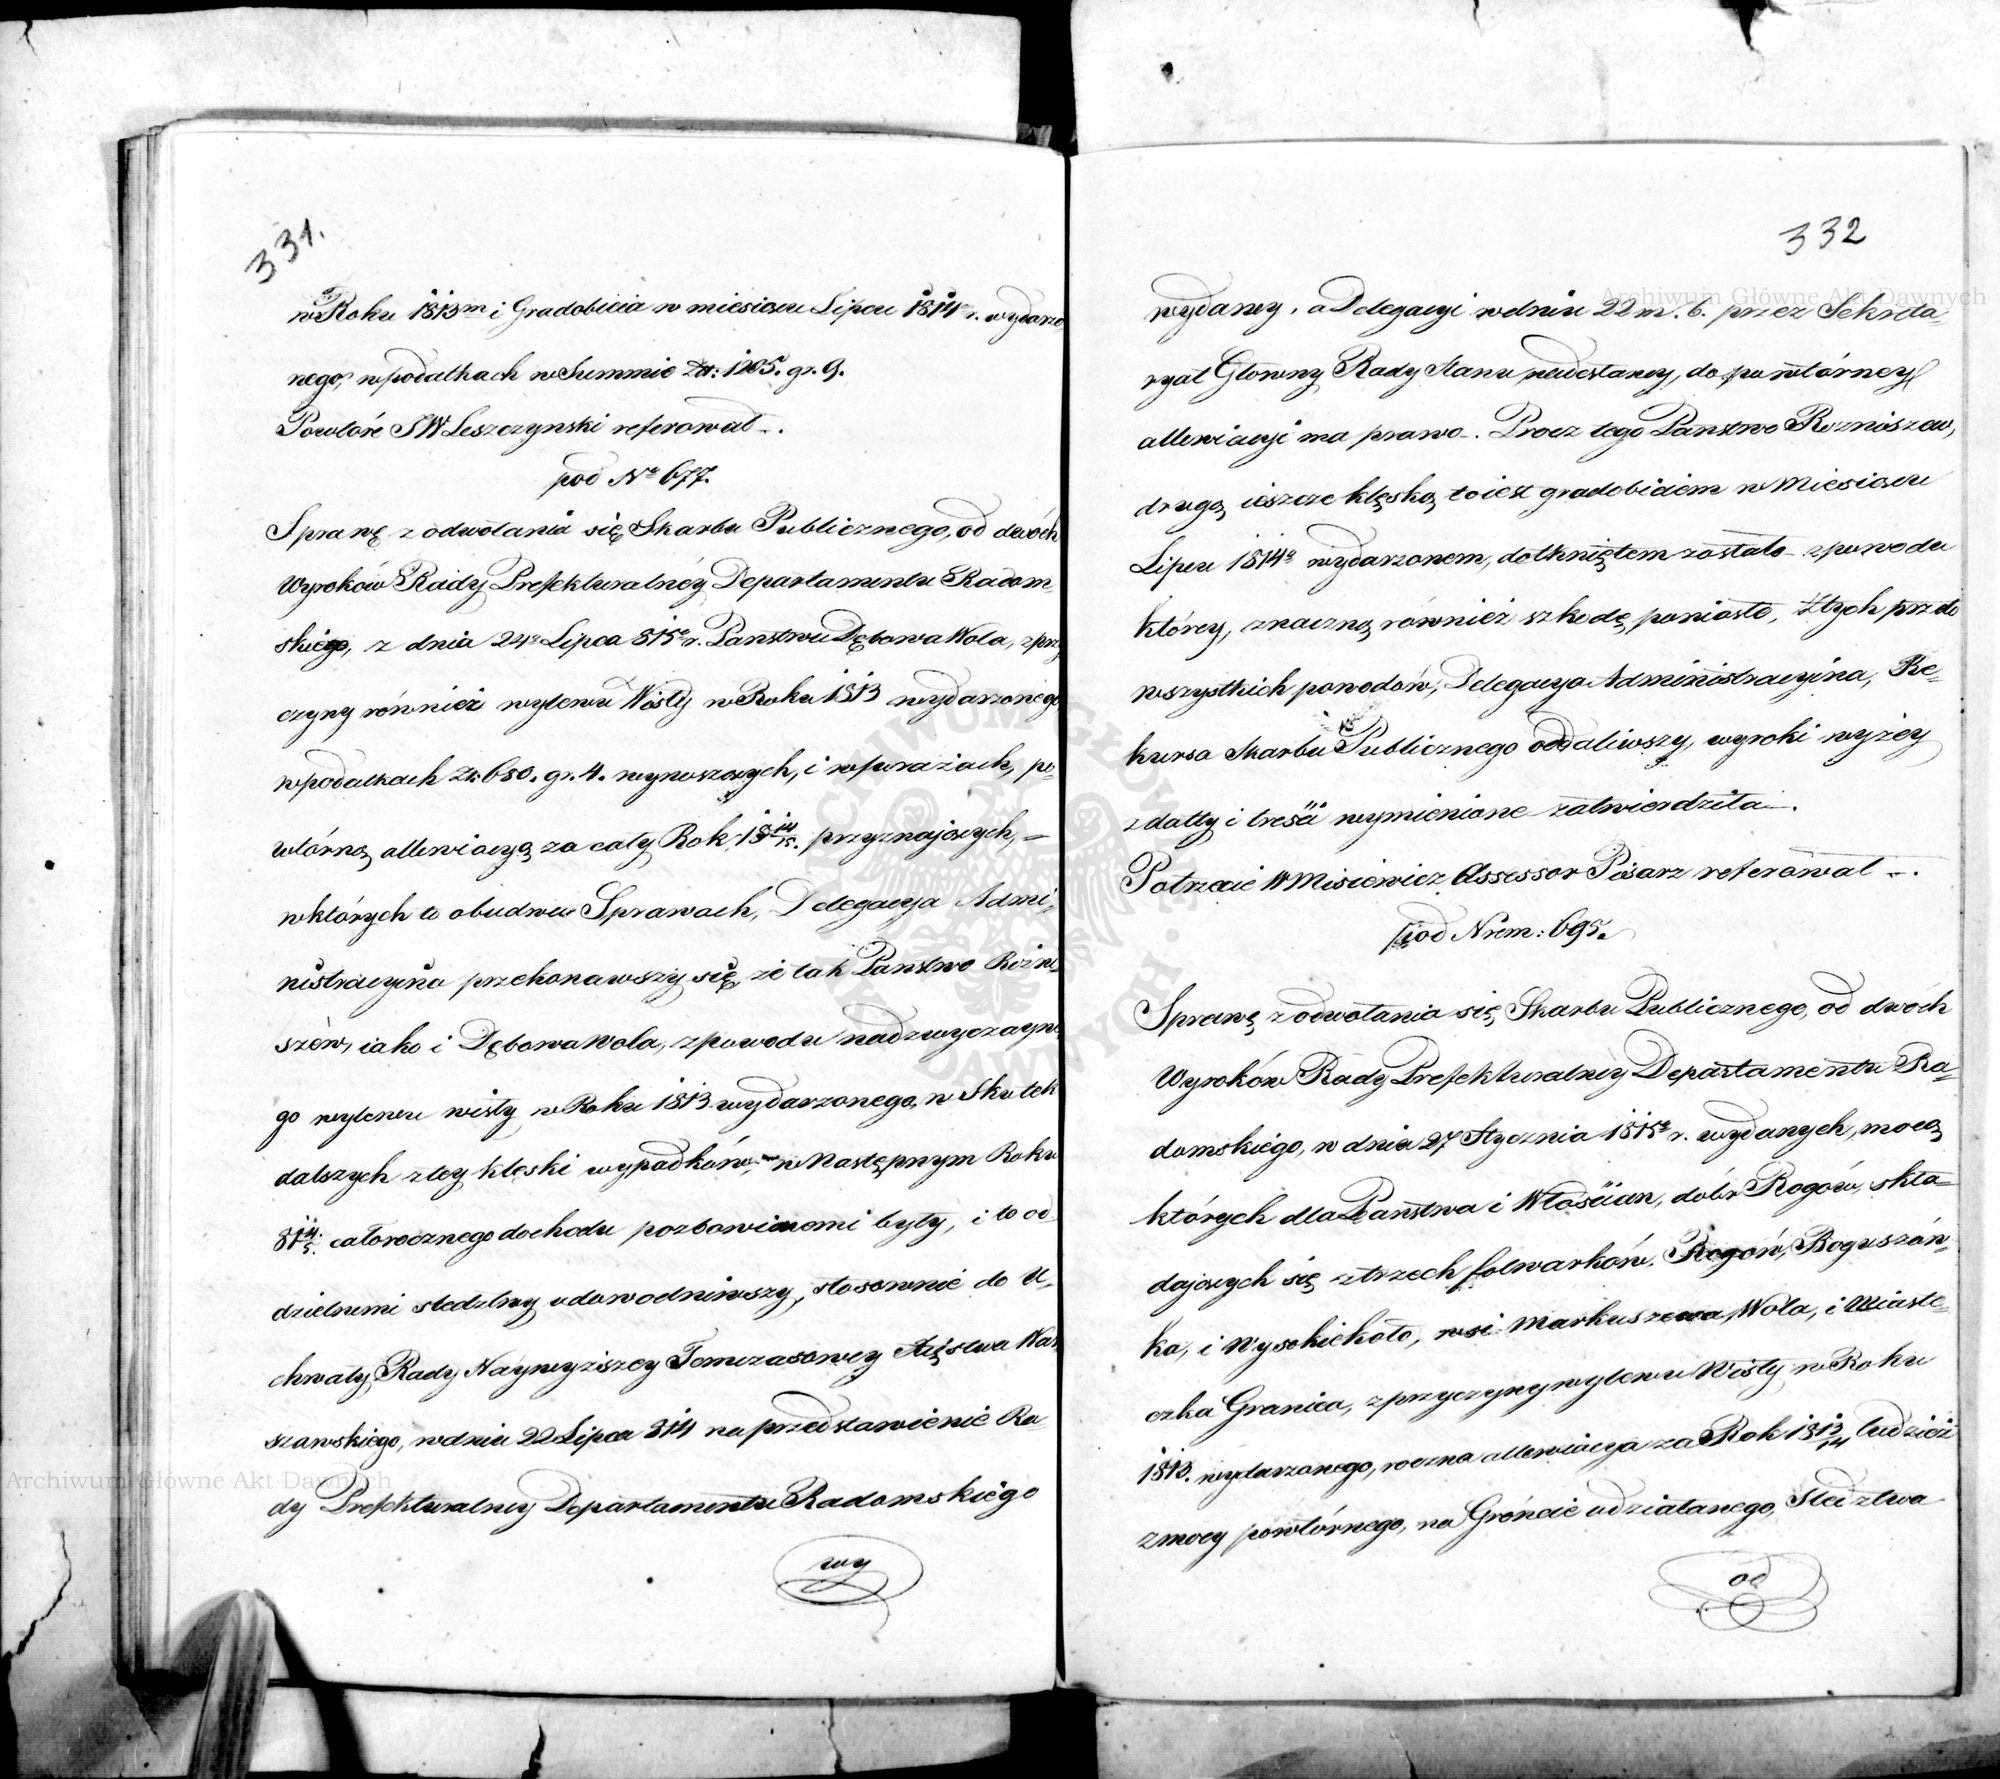 331.
w Roku 1813m i Gradobicia w miesiącu Lipcu 1814 r. wydarzo-
nego, w podatkach w Summie Zł: 1205. gr. 9.
Powtóre JW Leszczynski referował.
pod No 677.
Sprawę z odwołania się Skarbu Publicznego, od dwóch
Wyroków Rady Prefekturalnéy Departamentu Radom-
skiego, z dnia 24o Lipca 815o r. Państwu Dębowa Wola, z przy
czyny również wylewu Wisły w Roku 1813 wydarzonego
w podatkach Zł. 680. gr. 4. wynoszących, i w furażach, po-
wtórną allewiacyą za cały Rok 18 14/15. przyznaiących,
w których to obudwu Sprawach, Delegacya Admi-
nistracyina przekonawszy się że tak Państwo Rozni-
szew, iako i Dębowa Wola, z powodu nadzwyczayne
go wylewu wisły w Roku 1813 wydarzonego, w Skutek
dalszych z tey klęski wypadków, w Następnym Roku
81 4/5. całorocznego dochodu pozbawionemi były, i to od-
dzielnemi sledztwy udowodniwszy, stosownie do U-
chwały Rady Naywyższey Tymczasowey Xięstwa War
szawskiego, w dniu 22 Lipca 814 na przedstawienie Ra-
dy Prefekturalney Departamentu Radomskiego
wy
332
wydaney, a Delegacyi w dniu 22 m. b. przez Sekreta-
ryat Głowny Rady Stanu nadesłaney, do powtórney
allewiacyi ma prawo. Procz tego Państwo Rozniszew,
drugą ieszcze klęską to iest gradobiciem w Miesiącu
Lipcu 1814o wydarzonem, dotkniętem zostało z powodu
którey, znaczną również szkodę poniosło, Z tych przeto
wszystkich powodów, Delegacya Administracyina, Re-
kursa Skarbu Publicznego oddaliwszy, wyroki wyżey
z datty i treści wymienione zatwierdziła.
Potrzecie W Misiewicz Assessor Pisarz referował.
pod Nrem: 695.
Sprawę z odwołania się Skarbu Publicznego, od dwóch
Wyroków Rady Prefekturalnéy Departamentu Ra-
domskiego, w dniu 27 Stycznia 1815o r. wydanych, mocą
których dla Państwa i Włościan, dóbr Rogów, skła-
daiących się z trzech folwarków. Rogów, Boguszów-
ka, i Wysokiekoło, wsi Markuszowa Wola, i Miaste-
czka Granica, z przyczyny wylewu Wisły w Roku
1813. wydarzonego, roczna allewiacya za Rok 18 13/14 tudzież
z mocy powtórnego, na Gróncie udziałanego, Sledztwa
od
Archiwum Główne Akt Dawnych
Archiwum Główne Akt Dawnych
ARCHIWUM GŁÓWNE AKT DAWNYCH